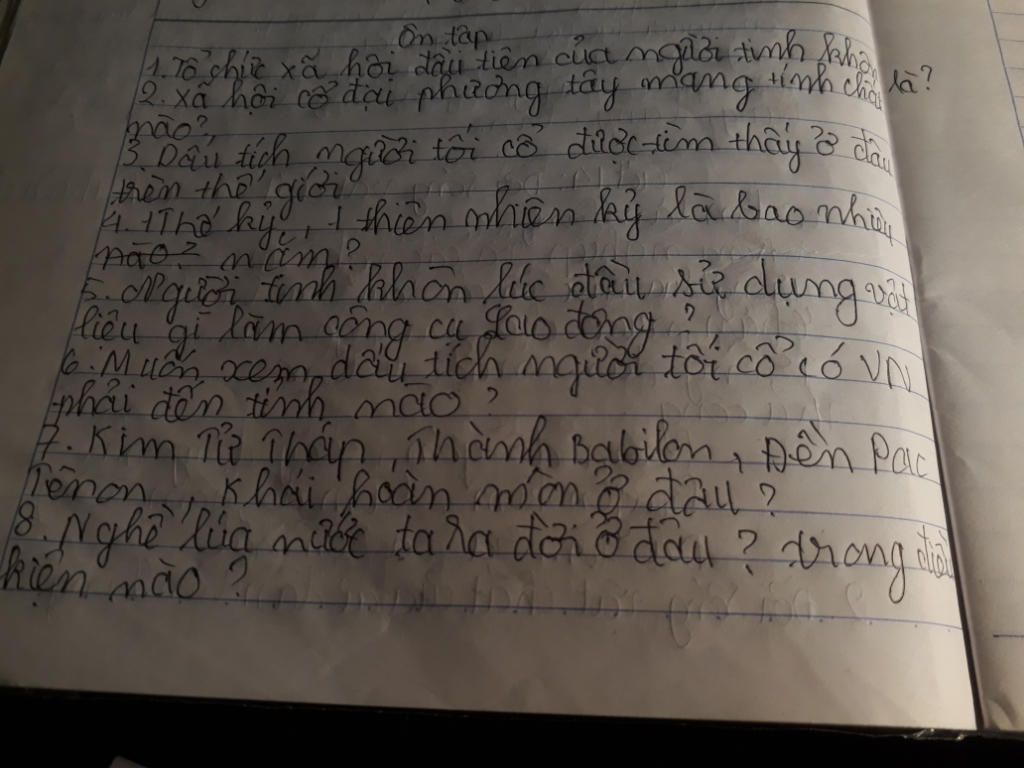 Ôn tập
1. Tổ chức xã hội đầu tiên của người tinh khôn là?
2. Xã hội cổ đại phương tây mang tính chất
nào?
3. Dấu tích người tối cổ được tìm thấy ở đâu
trên thế giới
4. 1 Thế kỷ, 1 thiên nhiên kỷ là bao nhiêu
nào? năm?
5. Người tinh khôn lúc đầu sử dụng vật
liệu gì làm công cụ lao động?
6. Muốn xem dấu tích người tối cổ có VN
phải đến tỉnh nào?
7. Kim Tử Tháp, Thành Babilon, Đền Pac
Tênon, Khải hoàn môn ở đâu?
8. Nghề lúa nước ta ra đời ở đâu? trong điều
kiện nào?